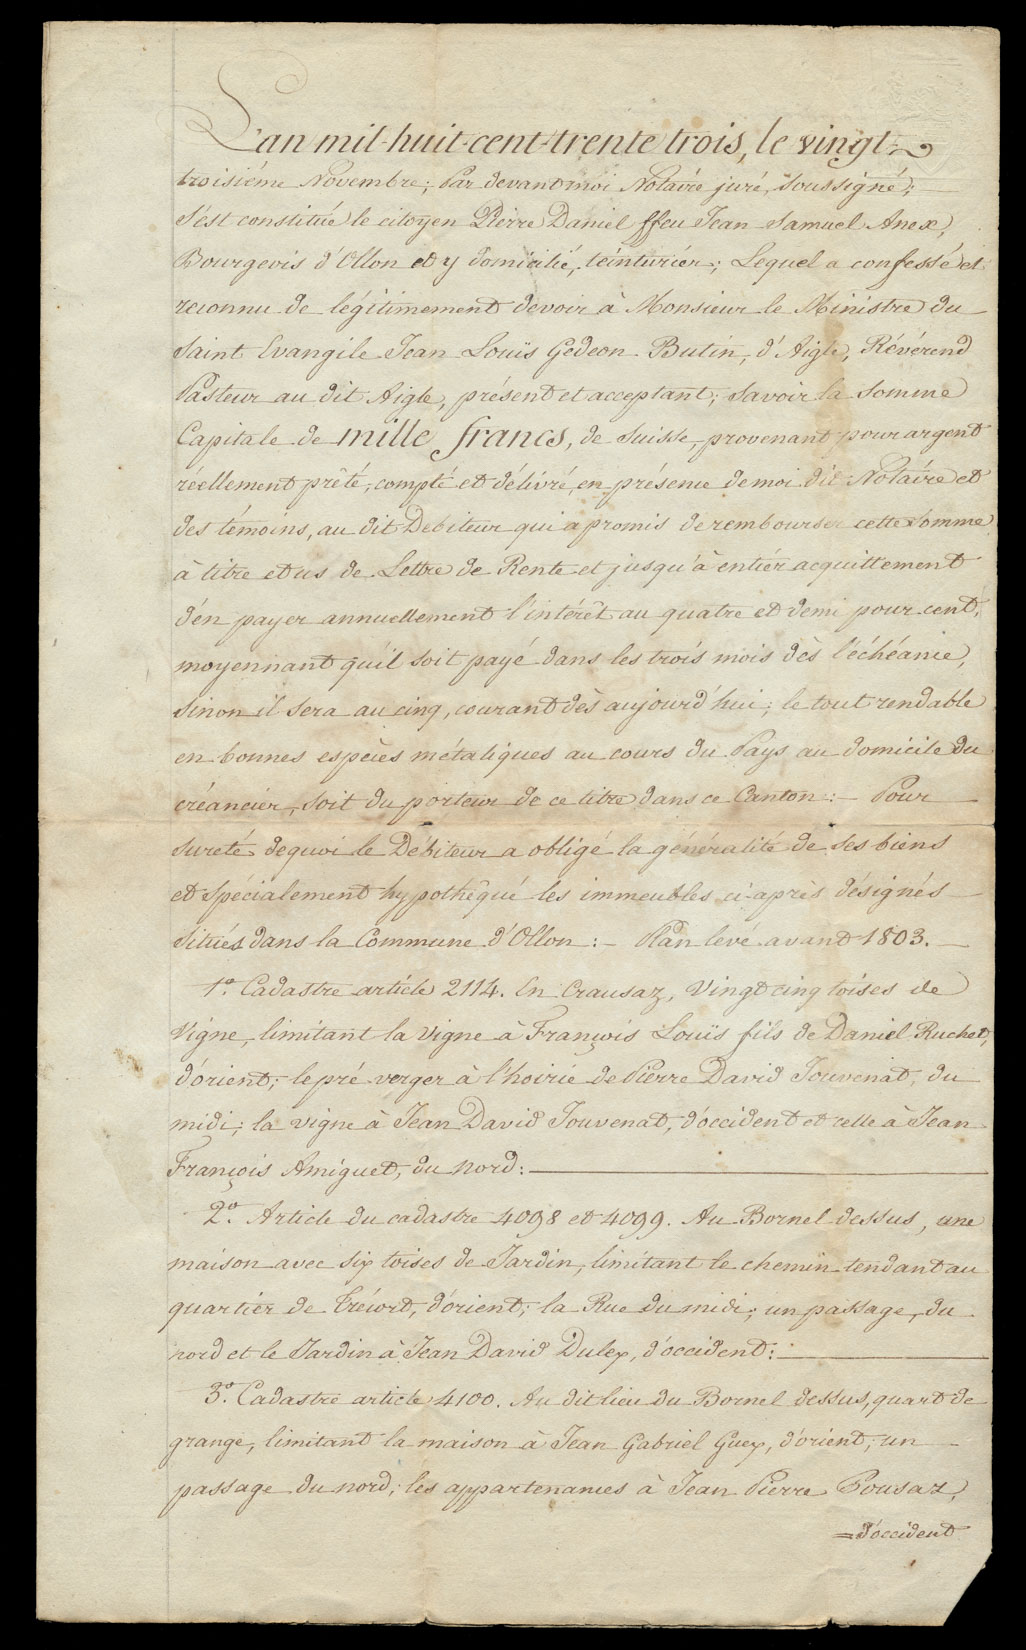 L'an mil-huit-cent-trente trois, le vingt-
troisiéme Novembre; Par devant moi Notaire juré, soussigné;
s'est constitué le citoyen Pierre Daniel ffeu Jean Samuel Anex,
Bourgeois d'Ollon et y domicilié, teinturiér; Lequel a confessé et
reconnu de légitimement devoir à Monsieur le Ministre du
Saint Evangile Jean Louïs Gedeon Butin, d'Aigle, Révérend
Pasteur au dit Aigle, présent et acceptant; savoir la somme
Capitale de mille francs, de Suisse, provenant pour argent
réellement prêté, compté et délivré, en présence de moi dit Notaire et
des témoins, au dit Debiteur qui a promis de rembourser cette somme
à titre et us de Lettre de Rente et jusqu'à entiér acquittement
d'en payer annuellement l'intérêt au quatre et demi pour cent,
moyennant qu'il soit payé dans les trois mois dès l'échéance,
sinon il sera au cinq, courant dès aujourd'hui; le tout rendable
en bonnes espèces métaliques au cours du Pays au domicile du
créanciér, soit du porteur de ce titre dans ce Canton:- Pour
sureté dequoi le Débiteur a obligé la généralité de ses biens
et spécialement hypothèqué les immeubles ci-après désignés
situés dans la Commune d'Ollon:- Plan levé avant 1803.
1º. Cadastre article 2114. En Crausaz, Vingt cinq toises de
Vigne, limitant la vigne à François Louïs fils de Daniel Ruchet,
d'orient; le pré verger à l'hoirie de Pierre David Jouvenat, du
midi; la vigne à Jean David Jouvenat, d'occident et celle à Jean
François Amiguet, du nord:
2º. Article du cadastre 4098 et 4099. Au Bornel dessus, une
maison avec six toises de Jardin, limitant le chemin tendant au
quartier de Trécord, d'orient; la Rue du midi; un passage, du
nord et le Jardin à Jean David Dulex, d'occident:
3º. Cadastre article 4100. Au dit lieu du Bornel dessus, quart de
grange, limitant la maison à Jean Gabriel Guex, d'orient; un
passage du nord; les appartenances à Jean Pierre Pousaz,
=d'occident